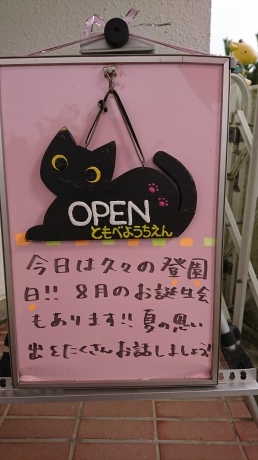 OPEN
ともべようちえん
今日は久々の登園
日!! 8月のお誕生会
もあります!! 夏の思い
出をたくさんお話しましょう!